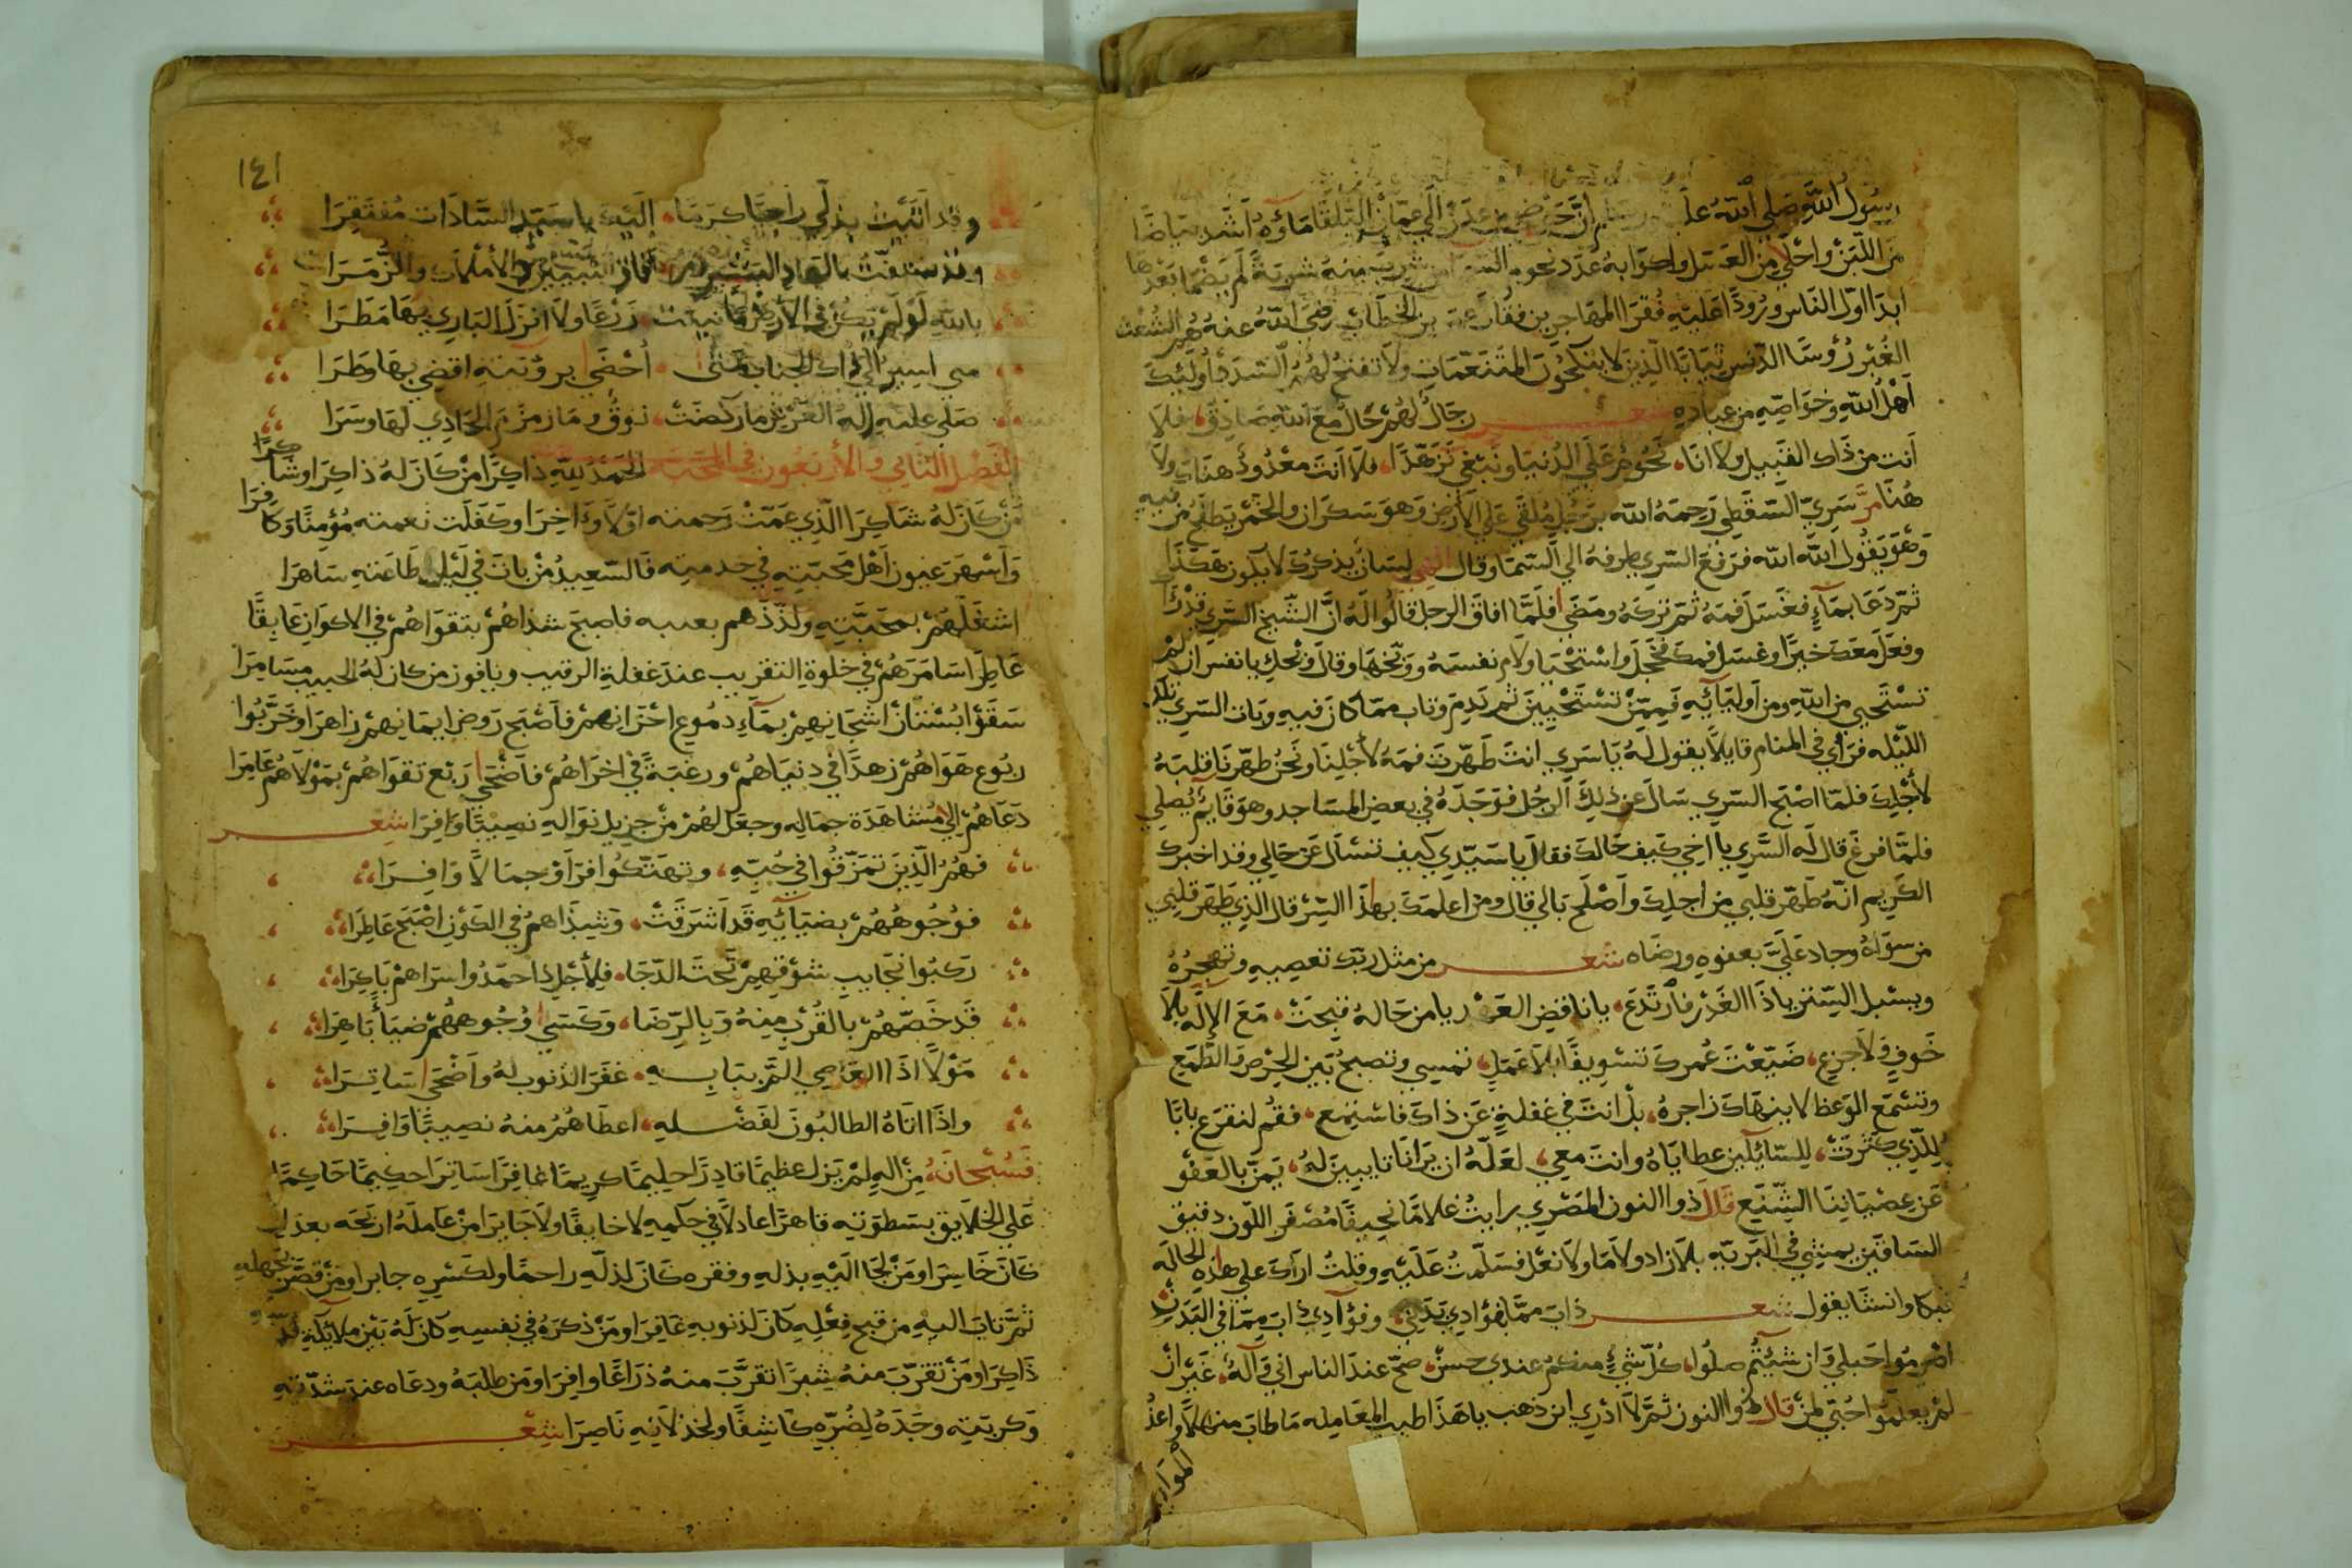 رسول الله صلى الله عليه وسلم ان حوضي من عدن الى عمان البلقا ماؤه اشد بياضا
من اللبن واحلى من العسل واكوابه عدد نجوم السما من شرب منه شربة لم يضما بعدها
ابدا اول الناس ورودا عليه فقرا المهاجرين فقال عمر بن الخطاب رضي الله عنه هم الشعث
الغبر رؤسا الدنس ثيابا الذين لا ينكحون المتنعمات ولا تفتح لهم السدد اولئك
اهل الله وخواصه من عباده شعر رجال لهم حال مع الله صادق، فلا
انت من ذاك القبيل ولا انا، تحوم على الدنيا وتبغي تزهدا، فلا انت معدود هناك ولا
هنا مر سري السقطي رحمه الله برجل ملقى على الارض وهو سكران والخمر يطلع من فيه
وهو يقول الله الله فرفع السري طرفه الى السما وقال الهي لسان يذكرك لا يكون هكذا
ثم دعا بماء فغسل فمه ثم تركه ومضى فلما افاق الرجل قالوا له ان الشيخ السري
وفعل معك خيرا وغسل فمك فخجل واستحيا ولام نفسه ووبخها وقال ويحك يا نفس ان لم
تستحيي من الله ومن اوليائه فممن تستحيين ثم ندم وتاب مما كان فيه وبات السري تلك
الليله فراى في المنام قايلا يقول له يا سري انت طهرت فمه لاجلنا ونحن طهرنا قلبه
لاجلك فلما اصبح السري سال عن ذلك الرجل فوجده في بعض المساجد وهو قايم يصلي
فلما فرغ قال له السري يا اخي كيف حالك فقال يا سيدي كيف تسال عن حالي وقد اخبرك
الكريم انه طهر قلبي من اجلك واصلح بالي قال ومن اعلمك بهذا السر قال الذي طهر قلبي
من سواه وجاد علي بعفوه ورضاه شعر من مثل ربك تعصيه وتهجره
ويسبل الستر يا ذا الغدر فارتدع، يا ناقض العهد يا من حاله قبحت، مع الاله بلا
خوف ولا جزع، ضيعت عمرك تسويفا بلا عمل، تمسي وتصبح بين الحرص والطمع
وتسمع الوعظ لا ينهاك زاجره، بل انت في غفلة عن ذاك فاستمع، فقم لنقرع بابا
للذي كثرت، للسائلين عطاياه وانت معي، لعله ان يرانا تايبين له، يمن بالعفو
عن عصياننا الشنيع قال ذوا النون المصري رايت غلاما نحيفا مصفر اللون دقيق
الساقين يمشي في البريه بلا زاد ولا ما ولا نعل فسلمت عليه وقلت اراك على هذه الحاله
فبكا وانشا يقول شعر ذاب مما بفؤادي بدني، وفؤادي ذاب مما في البدن
اصرموا حبلي وان شئتم صلوا، كل شيء منكم عندي حسن، صح عند الناس اني واله، غير ان
لم يعلموا حبتي لمن قال ذوا النون ثم لا ادري اين ذهب يا هذا طيب المعامله ما طاب منهلا واعذ
الموارد
١٤١
وقد اتيت بذلي راجيا كرما، اليك يا سيد السادات مفتقرا
بالله لو لم يكن في الارض ما نبتت، زرعا ولا انزل الباري بها مطرا
متى اسير الى ذاك الجناب متى، احضى برؤيته اقضي بها وطرا
صلى عليه اله العرش ما ركضت، نوق وما زمزم الحادي لها وسرا
الفصل الثاني والاربعون في المحبة الحمد لله ذاكرا من كان له ذاكرا وشاكرا
من كان له شاكرا الذي عمت رحمته اولا واخرا وكفلت نعمته مؤمنا وكافرا
واسهر عيون اهل محبته في خدمته فالسعيد من بات في ليل طاعته ساهرا
اشغلهم بمحبته ولذذهم بعتبه فاصبح شذاهم بتقواهم في الاكوان عابقا
عاطرا سامرهم في خلوة التقريب عند غفلة الرقيب ويا فوز من كان له الحبيب مسامرا
سقوا بستان اشجانهم بماء دموع احزانهم فاصبح روض ايمانهم زاهرا وخربوا
ربوع هواهم زهدا في دنياهم ورغبة في اخراهم فاضحى ربع تقواهم بمولاهم عامرا
دعاهم الى مشاهدة جماله وجعل لهم من جزيل نواله نصيبا وافرا شعر
فهم الذين تمزقوا في حبه، وتهتكوا فراو جمالا وافرا،
فوجوههم بضيائه قد اشرقت، وشذاهم في الكون اصبح عاطرا،
ركبوا نجايب شوقهم تحت الدجا، فلاجل ذا حمدوا سراهم باكرا،
قد خصهم بالقرب منه وبالرضا، وكسى وجوههم ضياء باهرا،
مولا اذا العاصي التم ببابه، غفر الذنوب له واضحى ساترا،
واذا اتاه الطالبون لفضله، اعطاهم منه نصيبا وافرا،
فسبحانه من اله لم يزل عظيما قادرا حليما كريما غافرا ساترا حكيما حاكما
على الخلايق بسطوته قاهرا عادلا في حكمه لا خايفا ولا جايرا من عامله اربحه بعد ان
كان خاسرا ومن لجا اليه بذله وفقره كان لذله راحما ولكسره جابرا ومن قصر بجهله
ثم تاب اليه من قبح فعله كان لذنوبه غافرا ومن ذكره في نفسه كان له بين ملائكة قدسه
ذاكرا ومن تقرب منه شبرا تقرب منه ذراعا وافرا ومن طلبه ودعاه عند شدته
وكربته وجده لضره كاشفا ولخذلانه ناصرا شعر